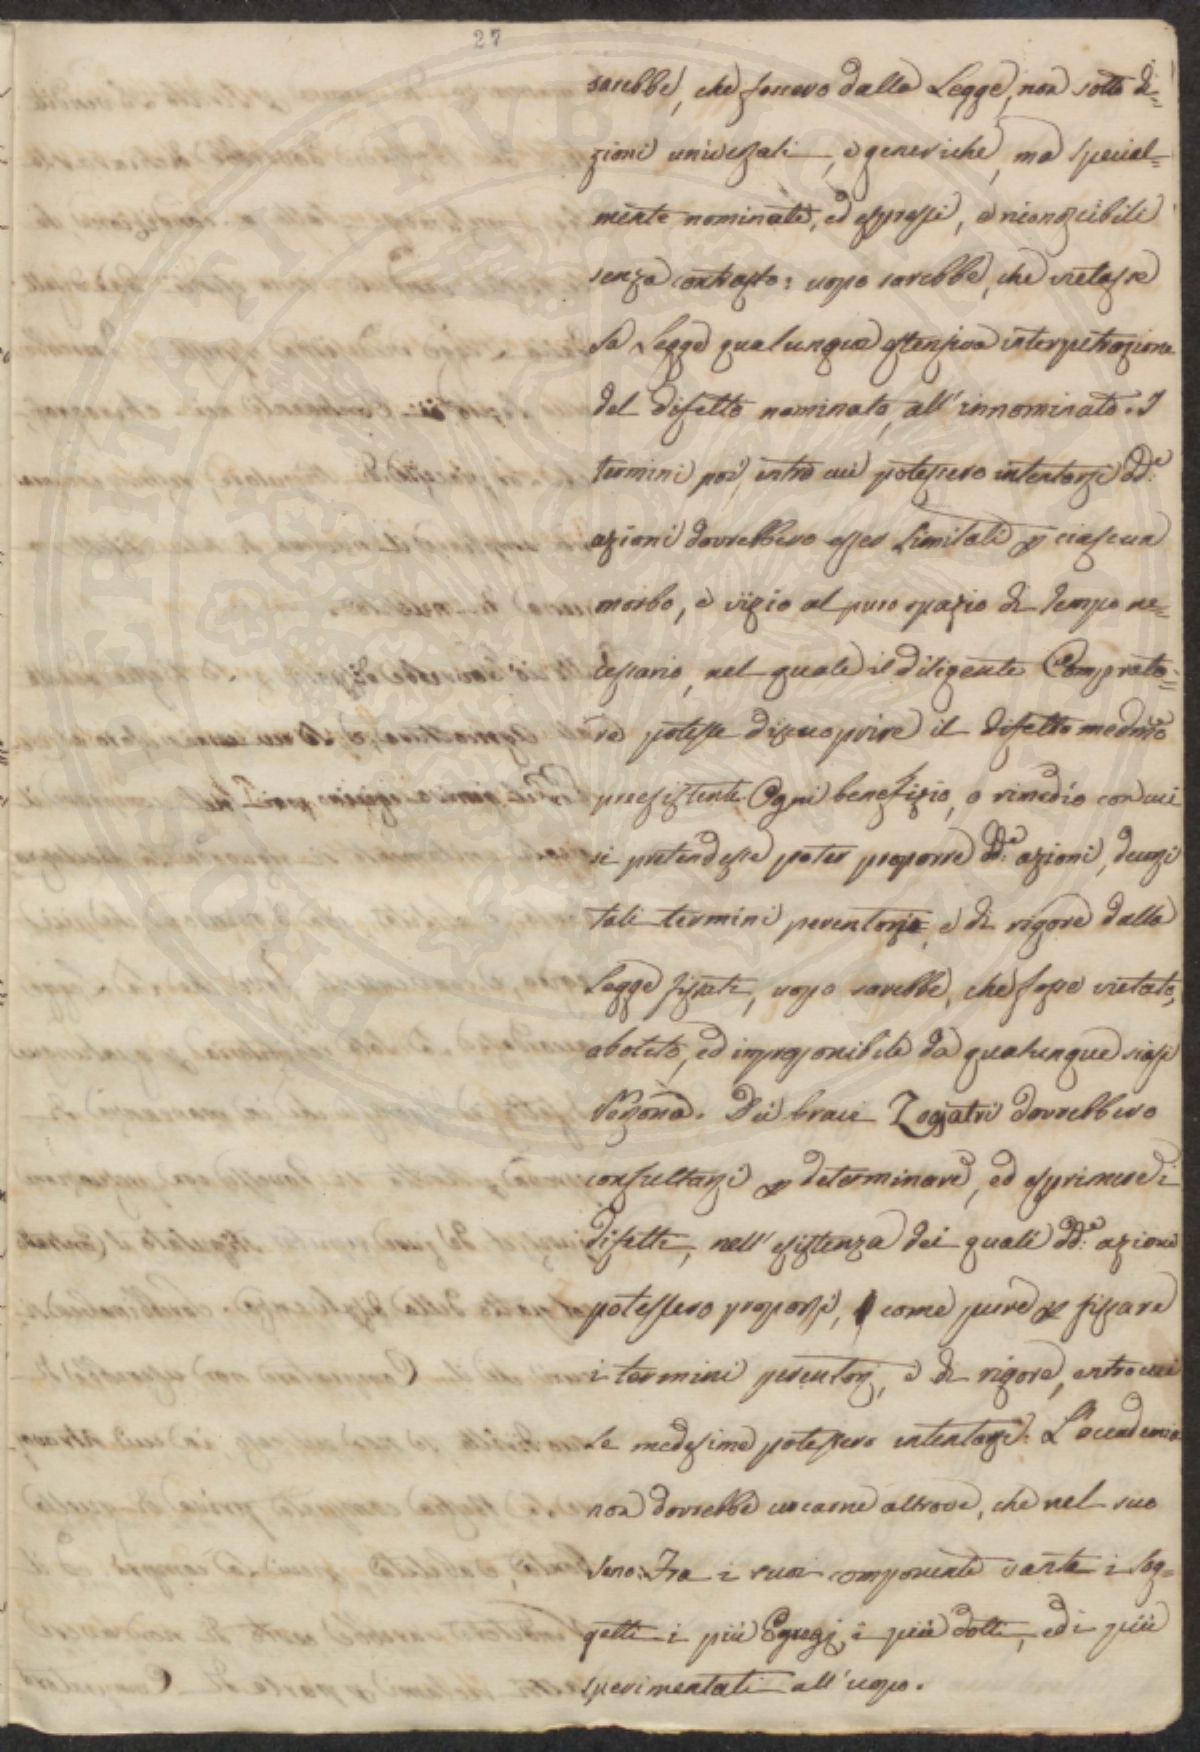 27
sarebbe, che fossero dalla Legge, non sotto di=
zioni universali, e generiche, ma special=
mente nominate, ed espressi, e riconoscibili
senza contrasto: uopo sarebbe, che vietasse
la Legge qualunque estensiva interpretrazione
del difetto nominato, all'innominato. I
termini poi, entro cui potessero intentarsi dd.e
azioni dovrebbero esser limitati p ciascun
morbo, e vizio al puro spazio di tempo ne=
cessario, nel quale il diligente Comprato=
re potesse discuoprire il difetto medmo
preesistente. Ogni benefizio, o rimedio con cui
si pretendesse poter proporre dd.e azioni, decorsi
tali termini perentorj, e di rigore dalla
Legge fissati, uopo sarebbe, che fosse vietato,
abolito, ed improponibile da qualunque siasi
Persona. Dei bravi Zojatri dovrebbero
consultarsi p determinare, ed esprimere i
difetti, nell'esistenza dei quali dd.e azioni
potessero proporsi, come pure p fissare
i termini perentorj, e di rigore, entro cui
le medesime potessero intentarsi. L'accademia
non dovrebbe cercarne altrove, che nel suo
seno: Fra i suoi componenti vanta i sog=
getti i più Egregj, i più dotti, ed i più
sperimentati all'uopo.
PVBLICI